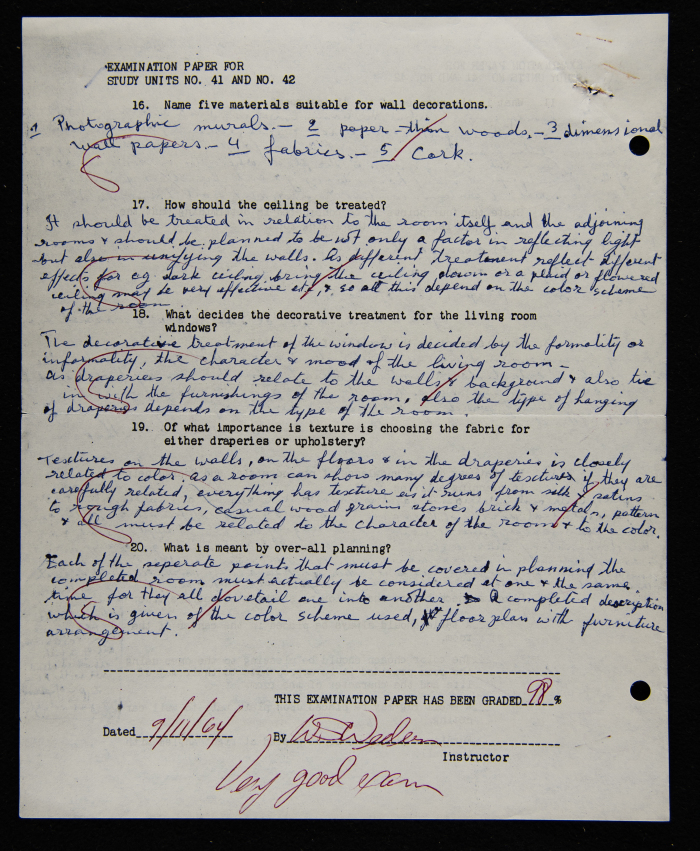 EXAMINATION PAPER FOR
STUDY UNITS NO. 41 AND NO. 42
16. Name five materials suitable for wall decorations.
1 Photographic murals. — 2 paper - thin woods. — 3 dimensional
wall papers. — 4 fabrics. — 5 Cork.
17. How should the ceiling be treated?
It should be treated in relation to the room itself and the adjoining
rooms & should be planned to be not only a factor in reflecting light
but also in unifying the walls. As different treatment reflect different
effects for eg dark ceiling bring the ceiling down or a plaid or flowered
ceiling may be very effective etc, & so all this depend on the color scheme
of the room
18. What decides the decorative treatment for the living room
windows?
The decorative treatment of the window is decided by the formality or
informality, the character & mood of the living room —
as draperies should relate to the walls & background & also tie
in with the furnishings of the room, also the type of hanging
of drapers depends on the type of the room.
19. Of what importance is texture is choosing the fabric for
either draperies or upholstery?
Textures on the walls, on the floors & in the draperies is closely
related to color, as a room can show many degrees of textures if they are
carefully related, everything has texture as it runs from silk & satins
to rough fabrics, casual wood grains stones brick & metals, pattern
& all must be related to the character of the room & to the color.
20. What is meant by over-all planning?
Each of the seperate points that must be covered in planning the
completed room must actually be considered at one & the same
time for they all dovetail one into another A completed description
which is given of the color scheme used, floor plan with furniture
arrangement.
THIS EXAMINATION PAPER HAS BEEN GRADED 98 %
Dated 9/11/64 By W.
Instructor
Very good exam